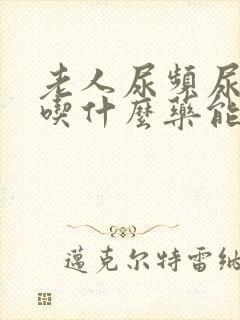 老人尿頻尿
喫什麼藥能
邁克尔特雷納